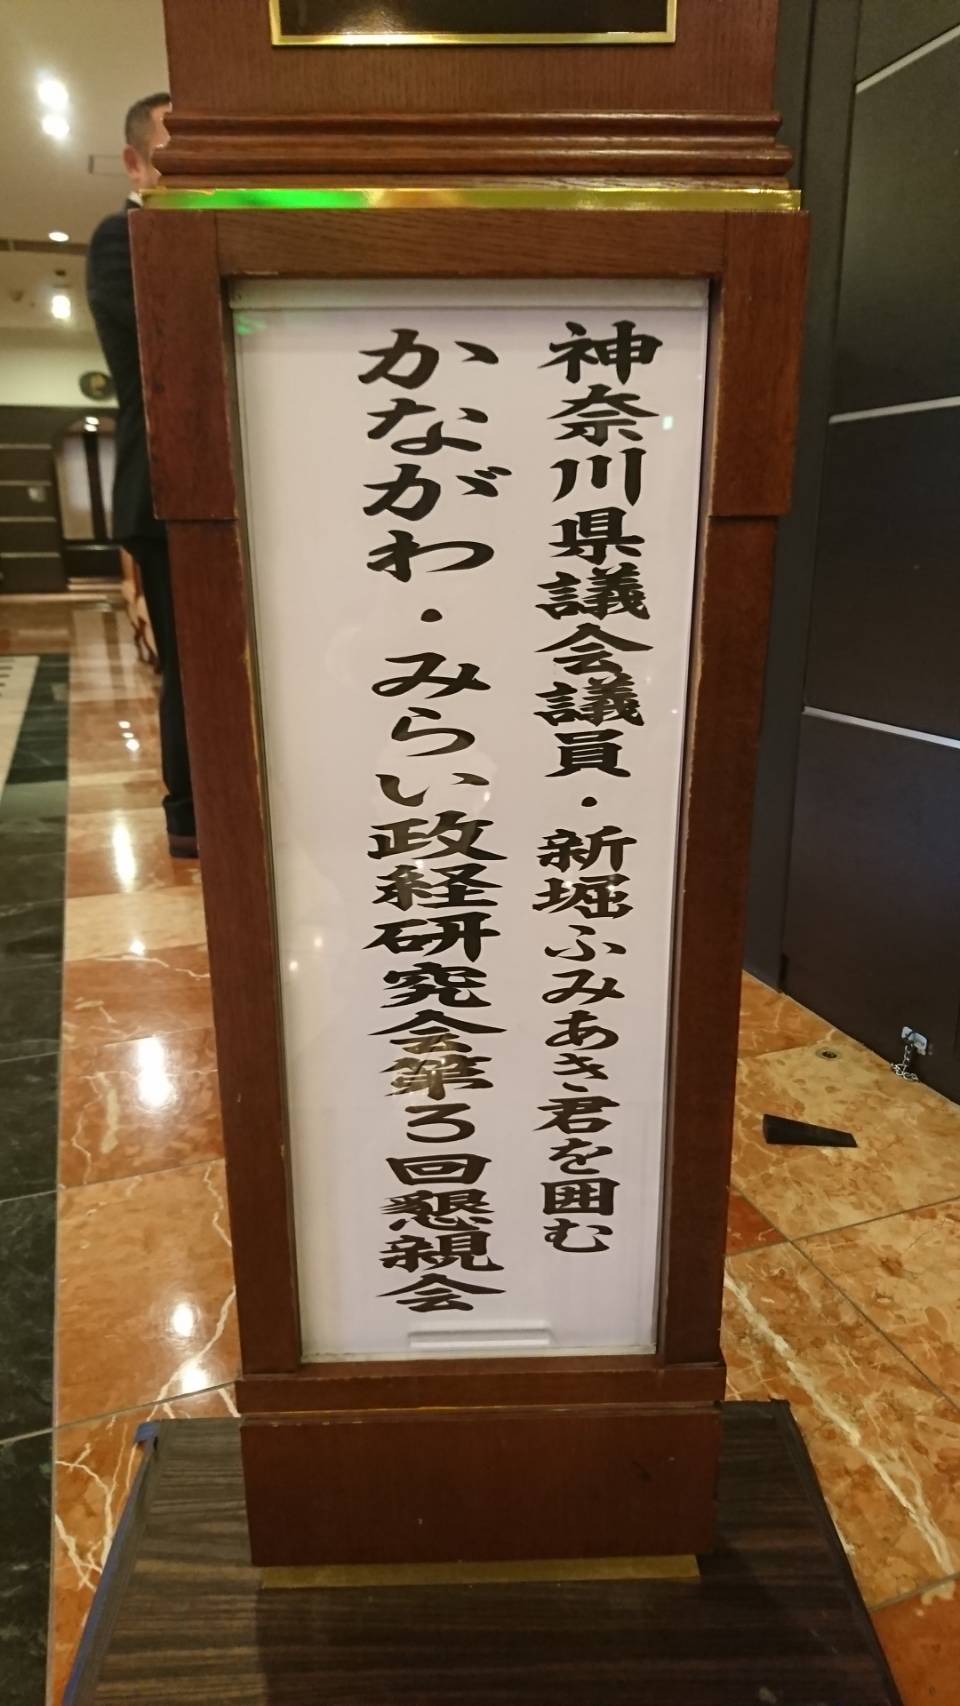 神奈川県議会議員・新堀ふみあき君を囲む
かながわ・みらい政経研究会第3回懇親会